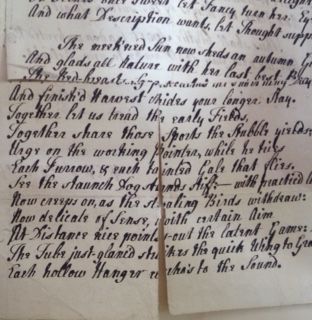 sweet let Fancy turn her
And what Description wants, let Thought supp
The meek'ned Sun now sheds an autumn G
And glads all Nature with her last best
The Red-breast
And finish'd Harvest chides your longer Stay.
Together let us tread the early Fields,
Together share those Sports the Stubble yields:
Urge on the working Pointer, while he tries
Each Furrow, & each tainted Gale that flies.
See the Staunch Dog stands stiff — with practised
Now creeps on, as the Birds withdraw:
Now delicate of Sense, with certain Aim
At Distance nice points out the latent Game:
The Tube just-glanced strikes the quick Wing to Gro
Each hollow Hanger echo's to the Sound.